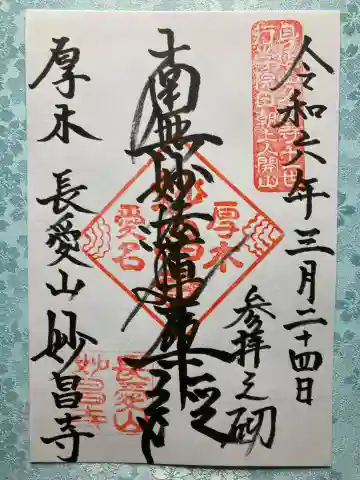 令和六年三月二十四日
参拝之砌
南無妙法蓮華経
厚木
長愛山妙昌寺
厚木
愛名
長愛山
妙昌寺